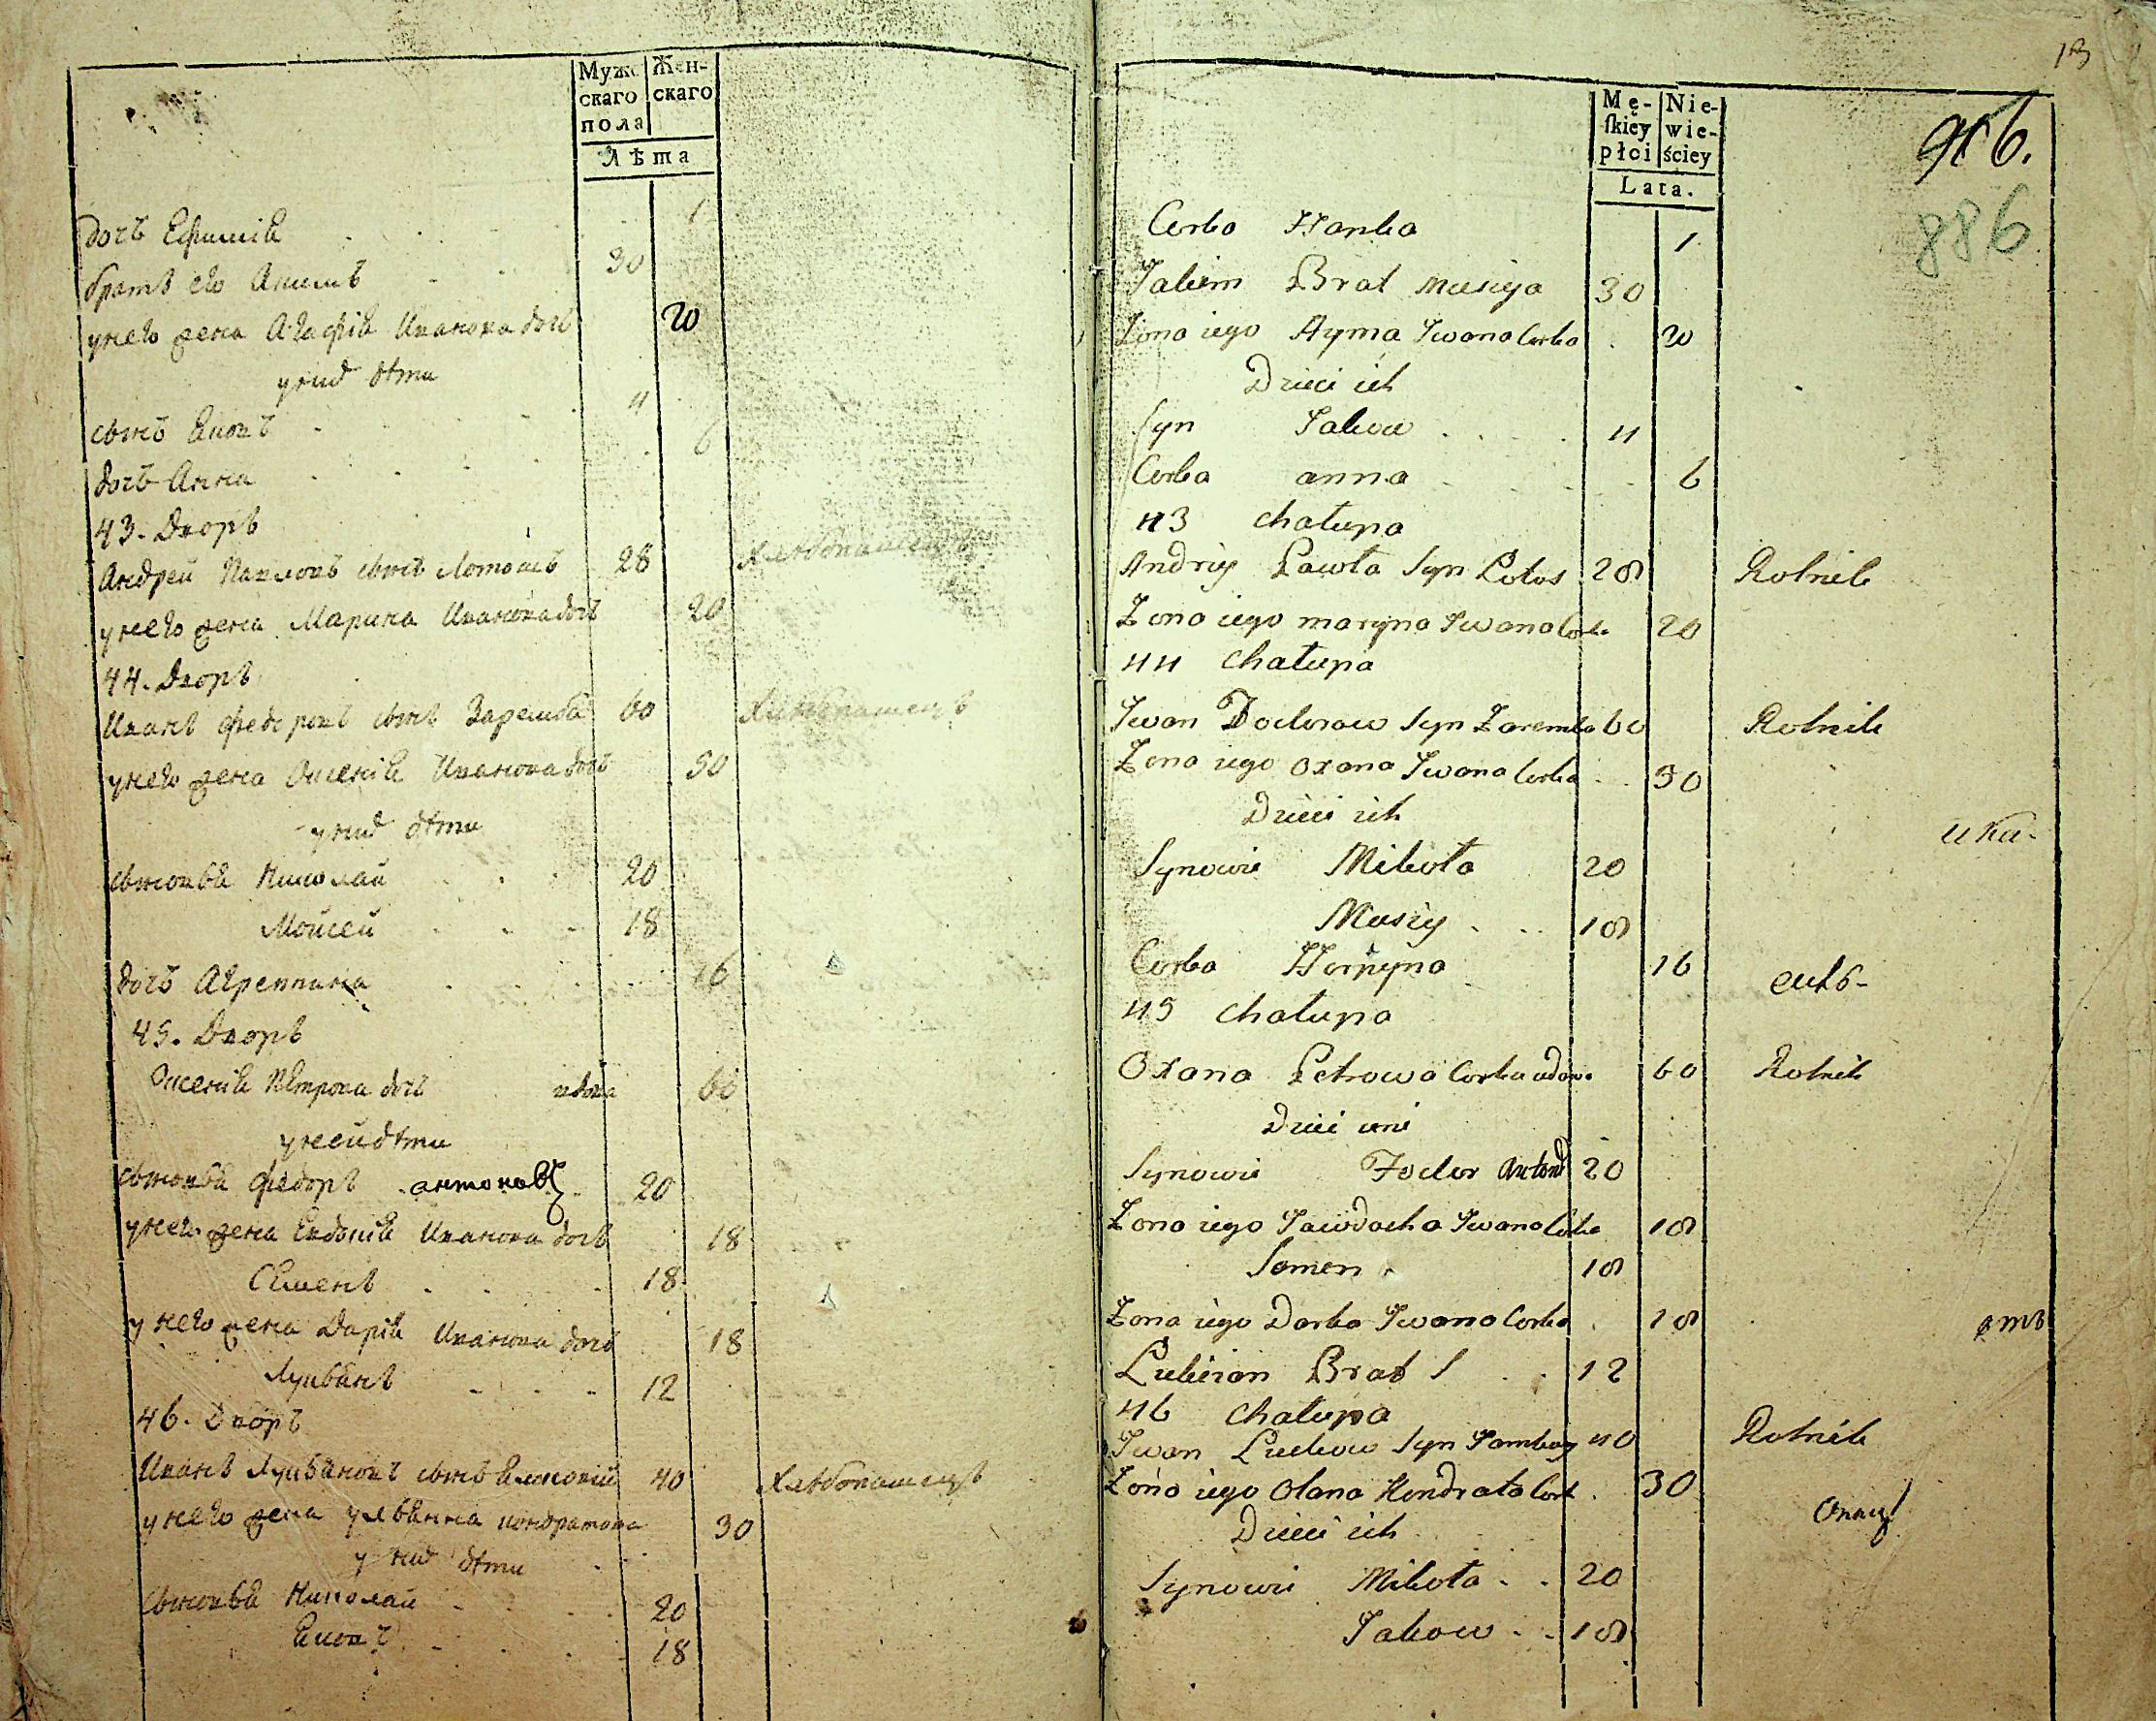 Муже
скаго
пола
Жен-
скаго
Лѣта
дочь Ефимія 1
братъ его Якимъ 30
у него жена Агафія Иванова дочь 20
у них дѣти
сынъ Яковъ 11
дочь Анна 6
43. Дворъ
Андрей Павловъ сынъ Лотошъ 28 Хлѣбопашецъ
у него жена Марина Иванова дочь 20
44. Дворъ
Иванъ Федоровъ сынъ Заремба 60 Хлѣбопашецъ
у него жена Ѯенія Иванова дочь 50
у них дѣти
сыновья Николай 20
Мойсей 18
дочь Агреппина 16
45. Дворъ
Ѯенія Петрова дочь вдова 60
у ней дѣти
сыновья Федоръ антоновы 20
у него жена Евдокія Иванова дочь 18
Семенъ 18
у него жена Дарія Иванова дочь 18
Лукьянъ 12
46. Дворъ
Иванъ Лукьяновъ сынъ 40 Хлѣбопашецъ
у него жена ульянна кондратова 30
у них дѣти
сыновья Николай 20
Яковъ 18
13
Mę-
ſkiey
płci
Nie-
wie-
ściey
Lata.
886
Corka Hanka 1
Jakim Brat Musieja 30
Zona iego Ayma Iwana Corka 20
Dzieci ich
Syn Jakow 11
Corka anna 6
43 Chałupa
Andriy Pawła Syn Lotos 28 Rolnik
Zona iego maryna Iwana Corka 20
44 Chałupa
Iwan Fodorow Syn Zaremba 60 Rolnik
Zona iego oxana Iwana Corka 50
Dzieci ich
ика-
Synowie Mikoła 20
Musiy 18
Corka Horpyna 16
45 Chałupa
Oxana Petrowa Corka wdowa 60 Rolnik
Dzieci
Synowie Fodor 20
Zona iego Jawdocha Iwana Corka 18
Semen 18
Zona iego Darka Iwana Corka 18
Lukian Brat 12
46 Chałupa
Iwan Lukow Syn 40 Rolnik
Zona iego Olana Kondrata Cork 30
Dzieci ich
Synowie Mikoła 20
Jakow 18